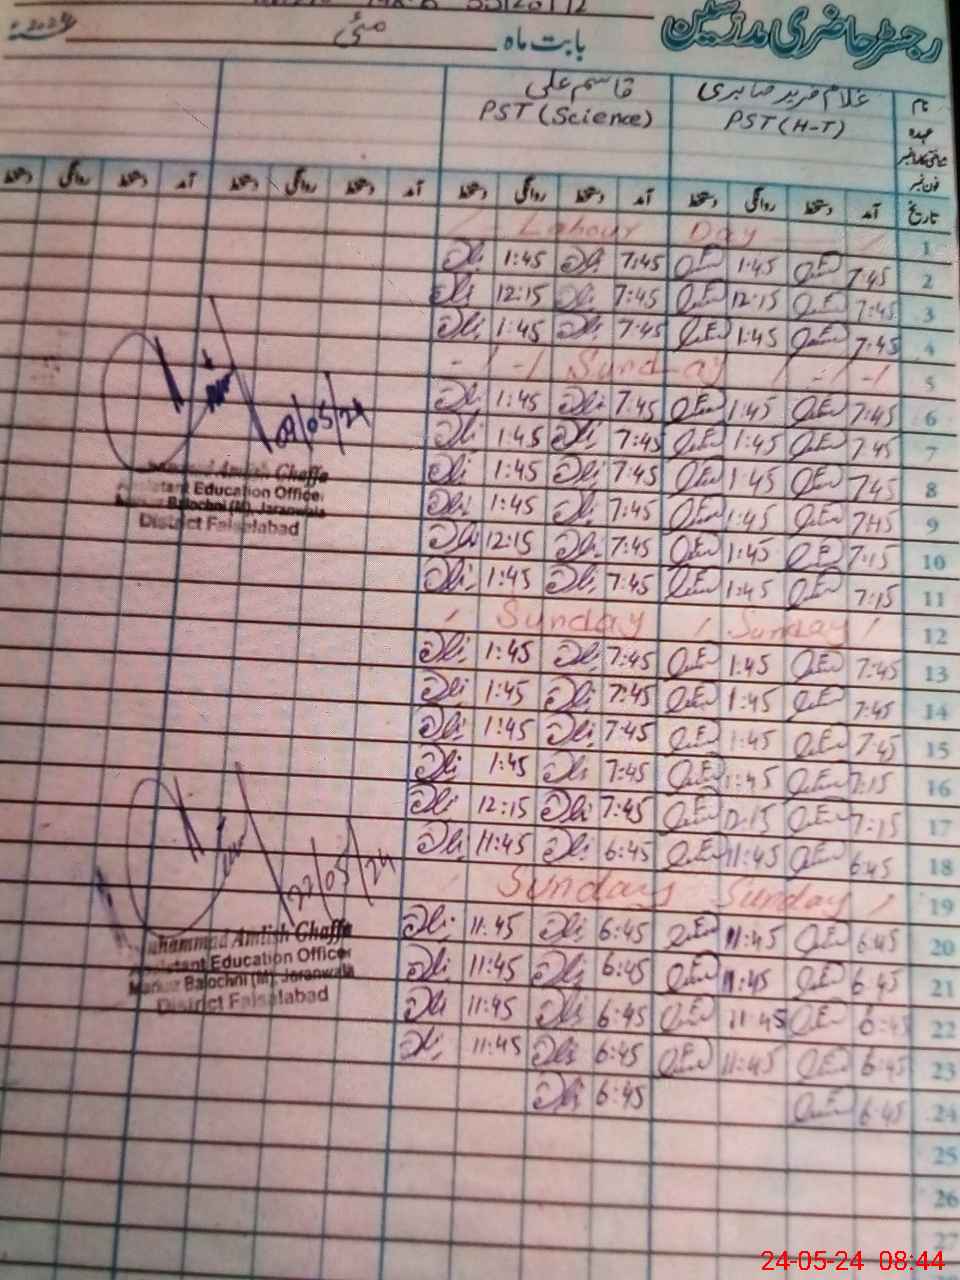 رجسٹر حاضری مدرسین
بابت ماہ مئی 2024ء
نام غلام فرید صابری قاسم علی
عہدہ PST (H-T) PST (Science)
شناختی کارڈ نمبر
فون نمبر
تاریخ آمد دستخط روانگی دستخط آمد دستخط روانگی دستخط آمد دستخط روانگی دستخط آمد دستخط روانگی دستخط
1 Labour Day
2 7:45 1:45 7:45 1:45
3 7:45 12:15 7:45 12:15
4 7:45 1:45 7:45 1:45
5 Sunday
6 7:45 1:45 7:45 1:45
7 7:45 1:45 7:45 1:45
8 7:45 1:45 7:45 1:45
9 7:45 1:45 7:45 1:45
10 7:15 1:45 7:45 12:15
11 7:15 1:45 7:45 1:45
12 Sunday Sunday
13 7:45 1:45 7:45 1:45
14 7:45 1:45 7:45 1:45
15 7:45 1:45 7:45 1:45
16 7:15 1:45 7:45 1:45
17 7:15 12:15 7:45 12:15
18 6:45 11:45 6:45 11:45
19 Sunday Sunday
20 6:45 11:45 6:45 11:45
21 6:45 11:45 6:45 11:45
22 6:45 11:45 6:45 11:45
23 6:45 11:45 6:45 11:45
24 6:45 6:45
25
26
27
/05/24
Amlish Ghaffa
Assistant Education Officer
Markaz Balochni (M), Jaranwala
District Faisalabad
22/05/24
Muhammad Amlish Ghaffa
Assistant Education Officer
Markaz Balochni (M), Jaranwala
District Faisalabad
24-05-24 08:44